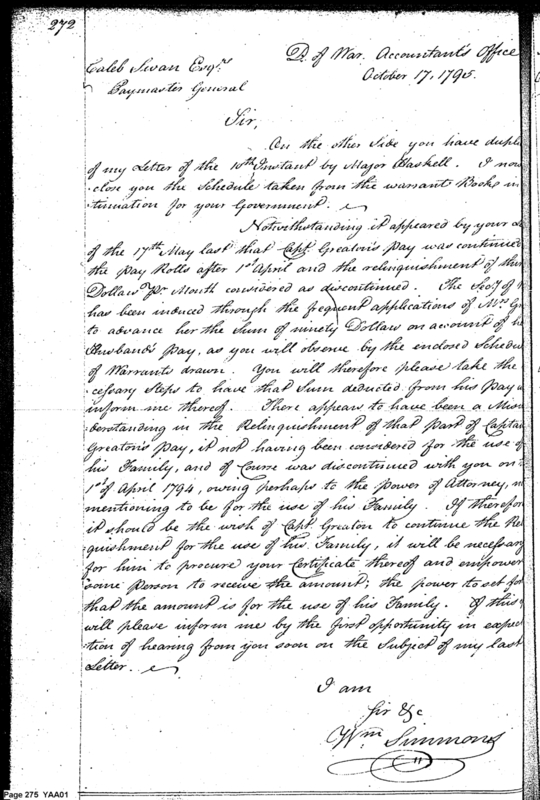 272
D. of War. Accountant's Office
October 17, 1795.
Caleb Swan Esqr.
Paymaster General
Sir,
On the other Side you have dupli
of my Letter of the 10th Instant by Major Haskell. I now
close you the Schedule taken from the warrant Books in
tinuation for your Government.
Notwithstanding it appeared by your
of the 17th May last that Capt. Greaton's pay was continued
the pay Rolls after 1st April and the relinquishment of thir
Dollars Pr. Month considered as discontinued. The Secy. of
has been induced through the frequent applications of Mrs. Gr
to advance her the Sum of ninety Dollars on account of he
Husband's Pay, as you will observe by the enclosed Schedu
of Warrants drawn. You will therefore please take the
cessary Steps to have that Sum deducted from his Pay a
inform me thereof. There appears to have been a Misu
derstanding in the Relinquishment of that part of Captai
Greaton's Pay, it not having been considered for the use of
his Family, and of Course was discontinued with you on
1st of April 1794, owing perhaps to the Power of Attorney, n
mentioning to be for the use of his Family. If therefor
it should be the wish of Capt. Greaton to continue the Re
quishment for the use of his Family, it will be necessary
for him to procure your Certificate thereof and empower
some Person to receive the amount; the power to set for
that the amount is for the use of his Family. Of this
will please inform me by the first opportunity in expec
tion of hearing from you soon on the Subject of my last
Letter.
I am
Sir &c
Wm. Simmons
Page 275 YAA01